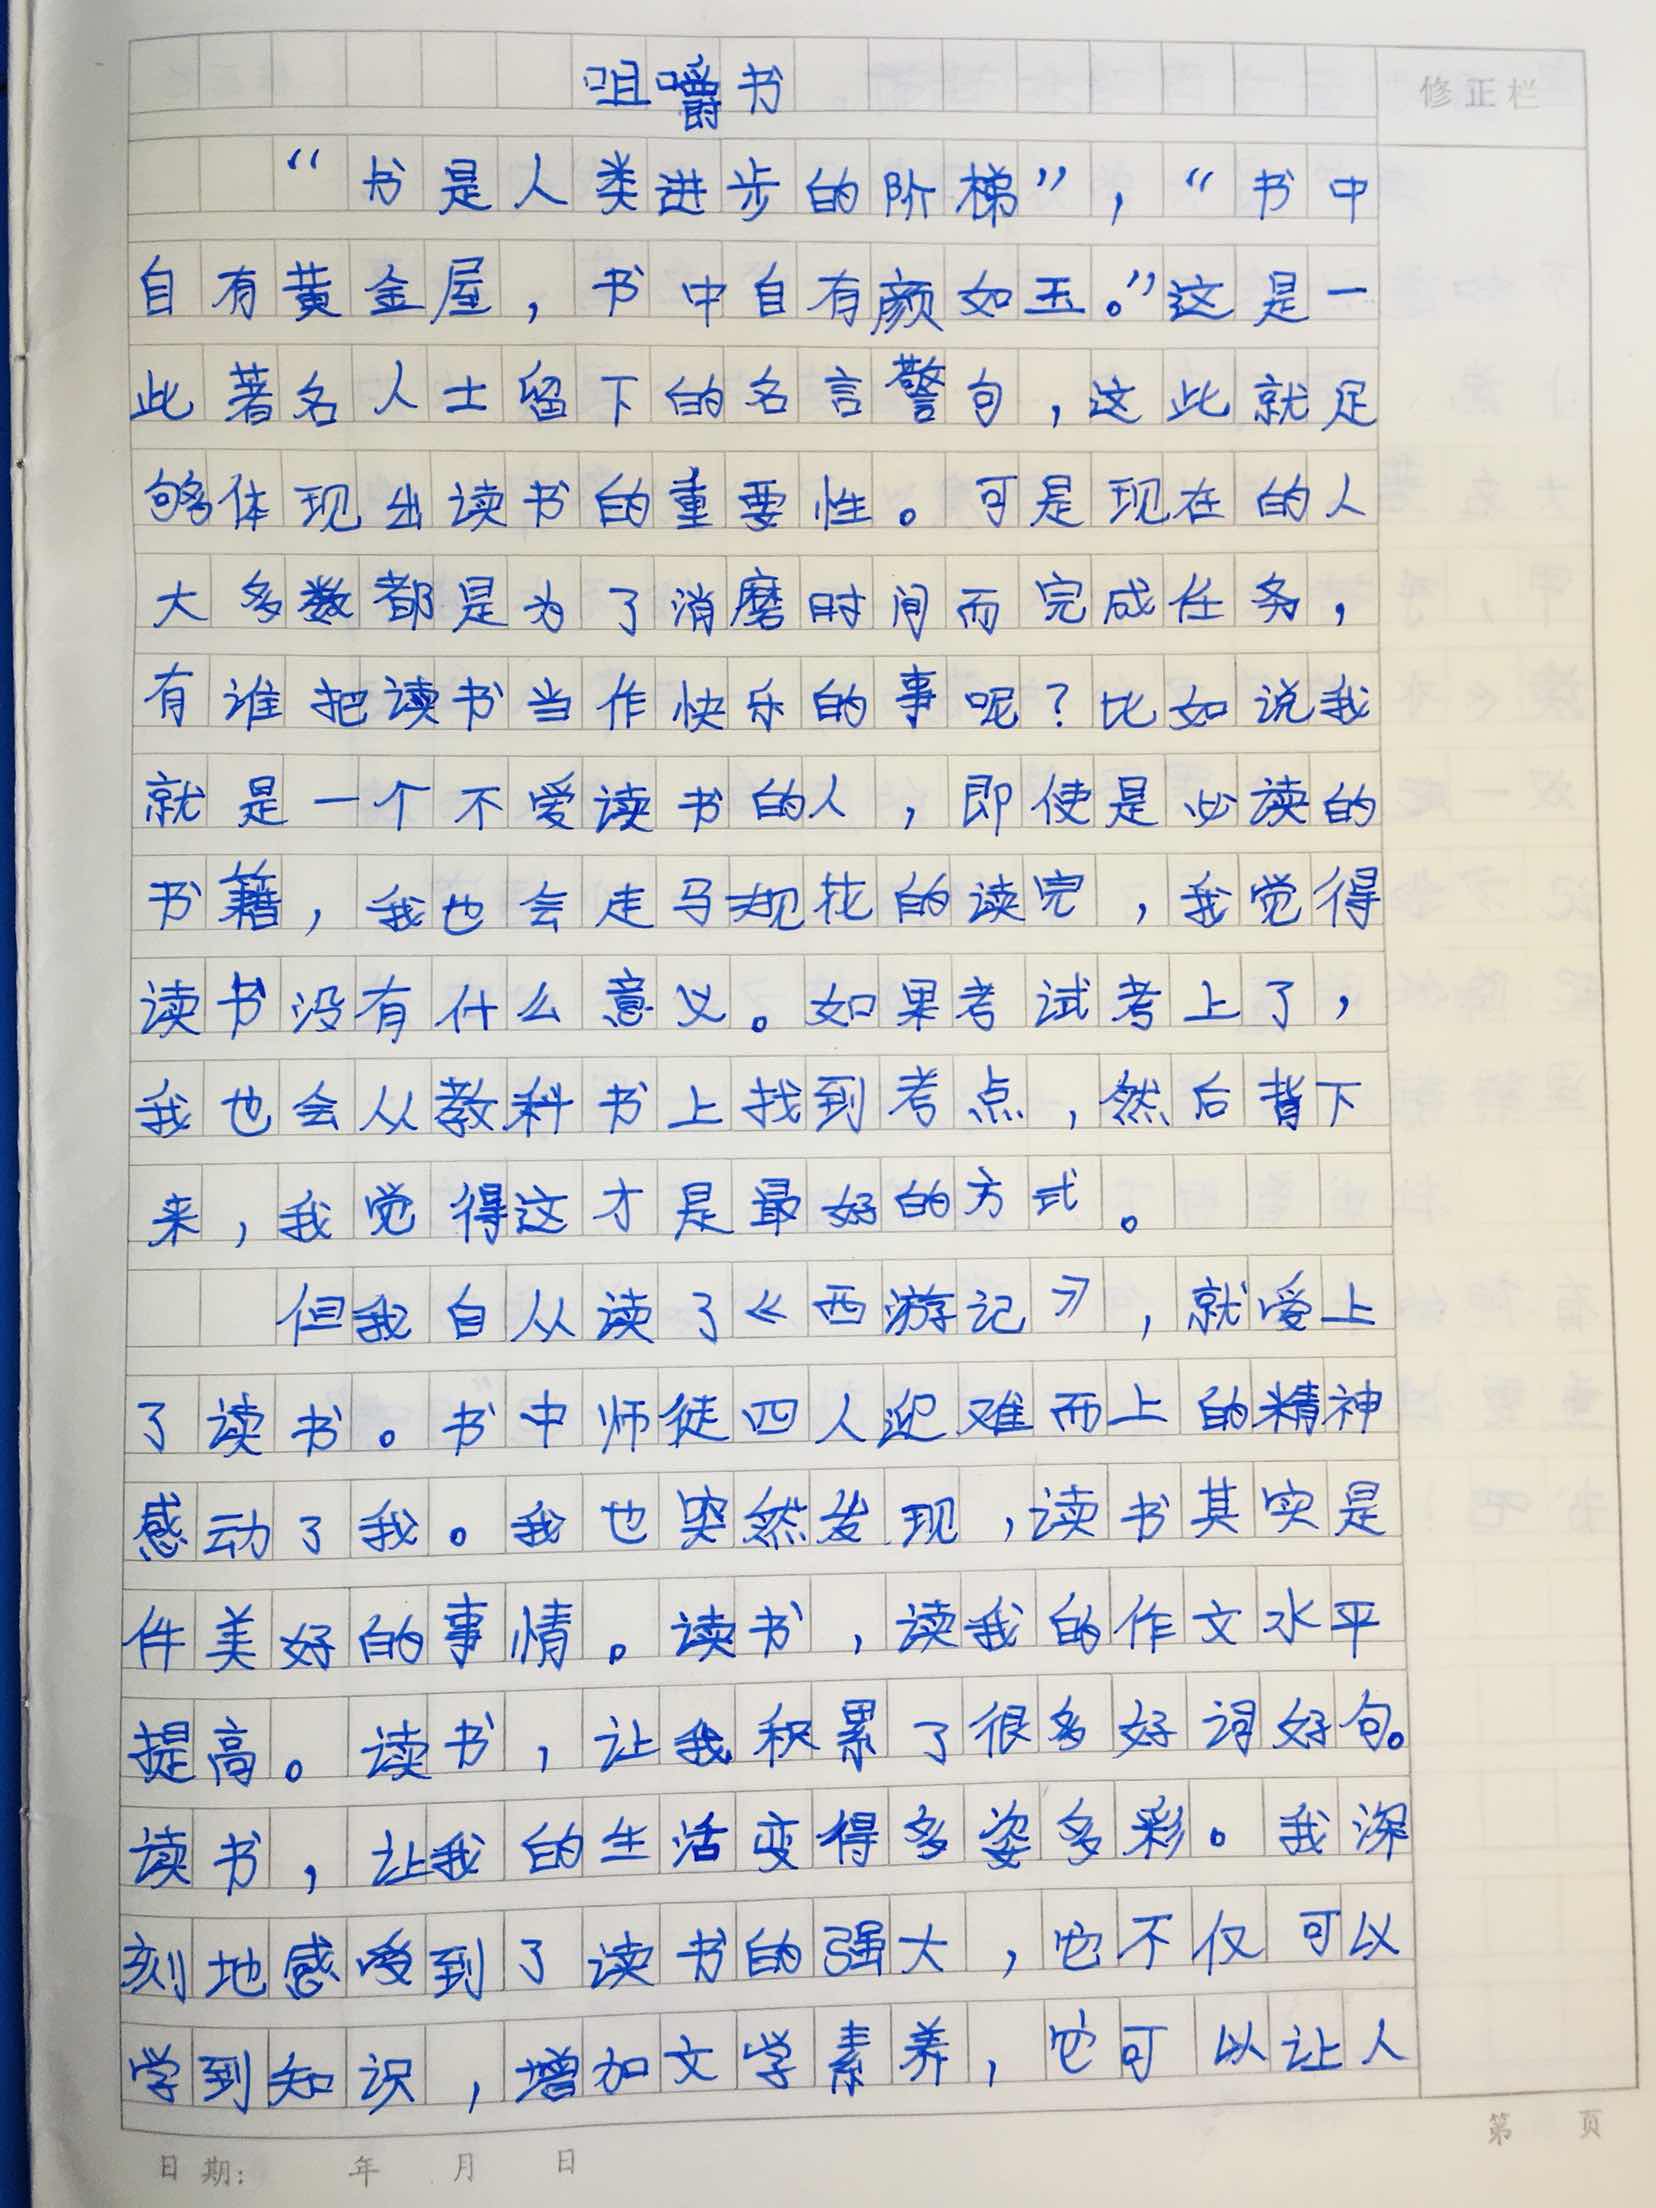 咀嚼书
修正栏
“书是人类进步的阶梯”，“书中
自有黄金屋，书中自有颜如玉。”这是一
此著名人士留下的名言警句，这此就足
够体现出读书的重要性。可是现在的人
大多数都是为了消磨时间而完成任务，
有谁把读书当作快乐的事呢？比如说我
就是一个不爱读书的人，即使是必读的
书籍，我也会走马观花的读完，我觉得
读书没有什么意义。如果考试考上了，
我也会从教科书上找到考点，然后背下
来，我觉得这才是最好的方式。
但我自从读了《西游记》，就爱上
了读书。书中师徒四人迎难而上的精神
感动了我。我也突然发现，读书其实是
件美好的事情。读书，读我的作文水平
提高。读书，让我积累了很多好词好句。
读书，让我的生活变得多姿多彩。我深
刻地感受到了读书的强大，它不仅可以
学到知识，增加文学素养，它可以让人
日期：　年　月　日
第　页